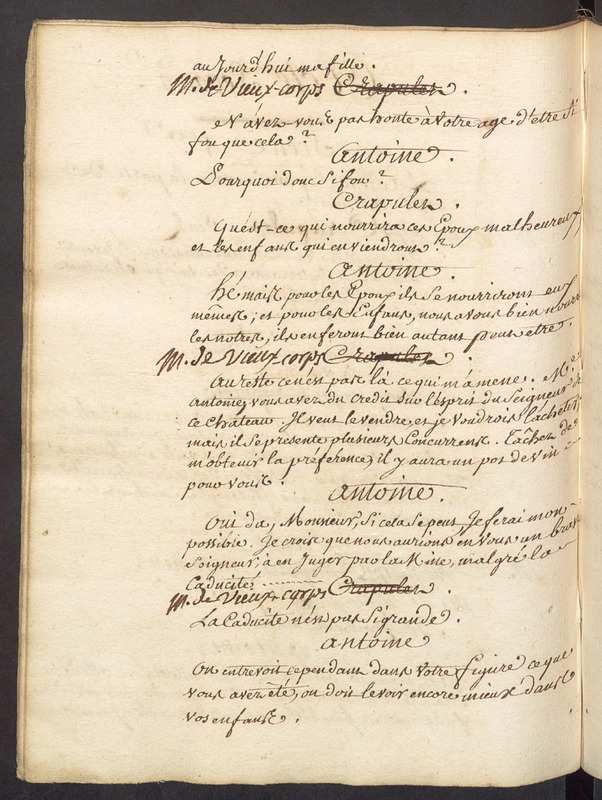 aujourd'hui ma fille.
M. de Vieux-corps Crapulen.
eh n'avez-vous pas honte à votre age d'etre si
fou que cela?
Antoine.
Pourquoi donc si fou?
Crapulen.
Qu'est-ce qui nourrira ces Epoux malheureux
et les enfans qui en viendront?
Antoine.
hé mais pour les Epoux ils se nourriront eux
mêmes; et pour les Enfans, nous avons bien nourri
les notres, ils en feront bien autant peut etre.
M. de Vieux corps Crapulen.
Au reste ce n'est pas là ce qui m'amene. Me
antoine, vous avez du credit sur l'esprit du Seigneur de
ce chateau. Il veut le vendre, et je voudrois l'acheter,
mais il se presente plusieurs Concurrens. Tâchez de
m'obtenir la préférence, il y aura un pot de vin
pour vous.
Antoine.
Oui da, Monsieur, si cela se peut, Je ferai mon
possible. Je crois que nous aurions en vous un brave
Seigneur, à en Juger par la Mine, malgré la
Caducité.........
M. de Vieux-corps Crapulen.
La Caducité n'est pas si grande.
antoine
On entrevoit cependant dans votre figure ce que
vous avez été; on doit le voir encore mieux dans
vos enfans.